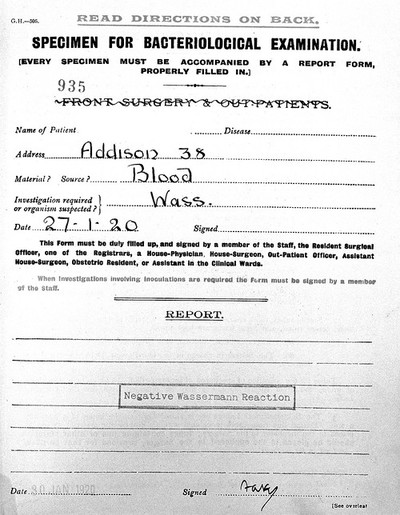 G.H.—506.
READ DIRECTIONS ON BACK.
SPECIMEN FOR BACTERIOLOGICAL EXAMINATION.
[EVERY SPECIMEN MUST BE ACCOMPANIED BY A REPORT FORM,
PROPERLY FILLED IN.]
935
FRONT SURGERY & OUT-PATIENTS.
Name of Patient Disease
Address Addison 38
Material? Source? Blood
Investigation required
or organism suspected? } Wass.
Date 27-1-20 Signed
This Form must be duly filled up, and signed by a member of the Staff, the Resident Surgical
Officer, one of the Registrars, a House-Physician, House-Surgeon, Out-Patient Officer, Assistant
House-Surgeon, Obstetric Resident, or Assistant in the Clinical Wards.
When Investigations involving Inoculations are required the Form must be signed by a member
of the Staff.
REPORT.
Negative Wassermann Reaction
Date 30 JAN 1920 Signed
[See overleaf